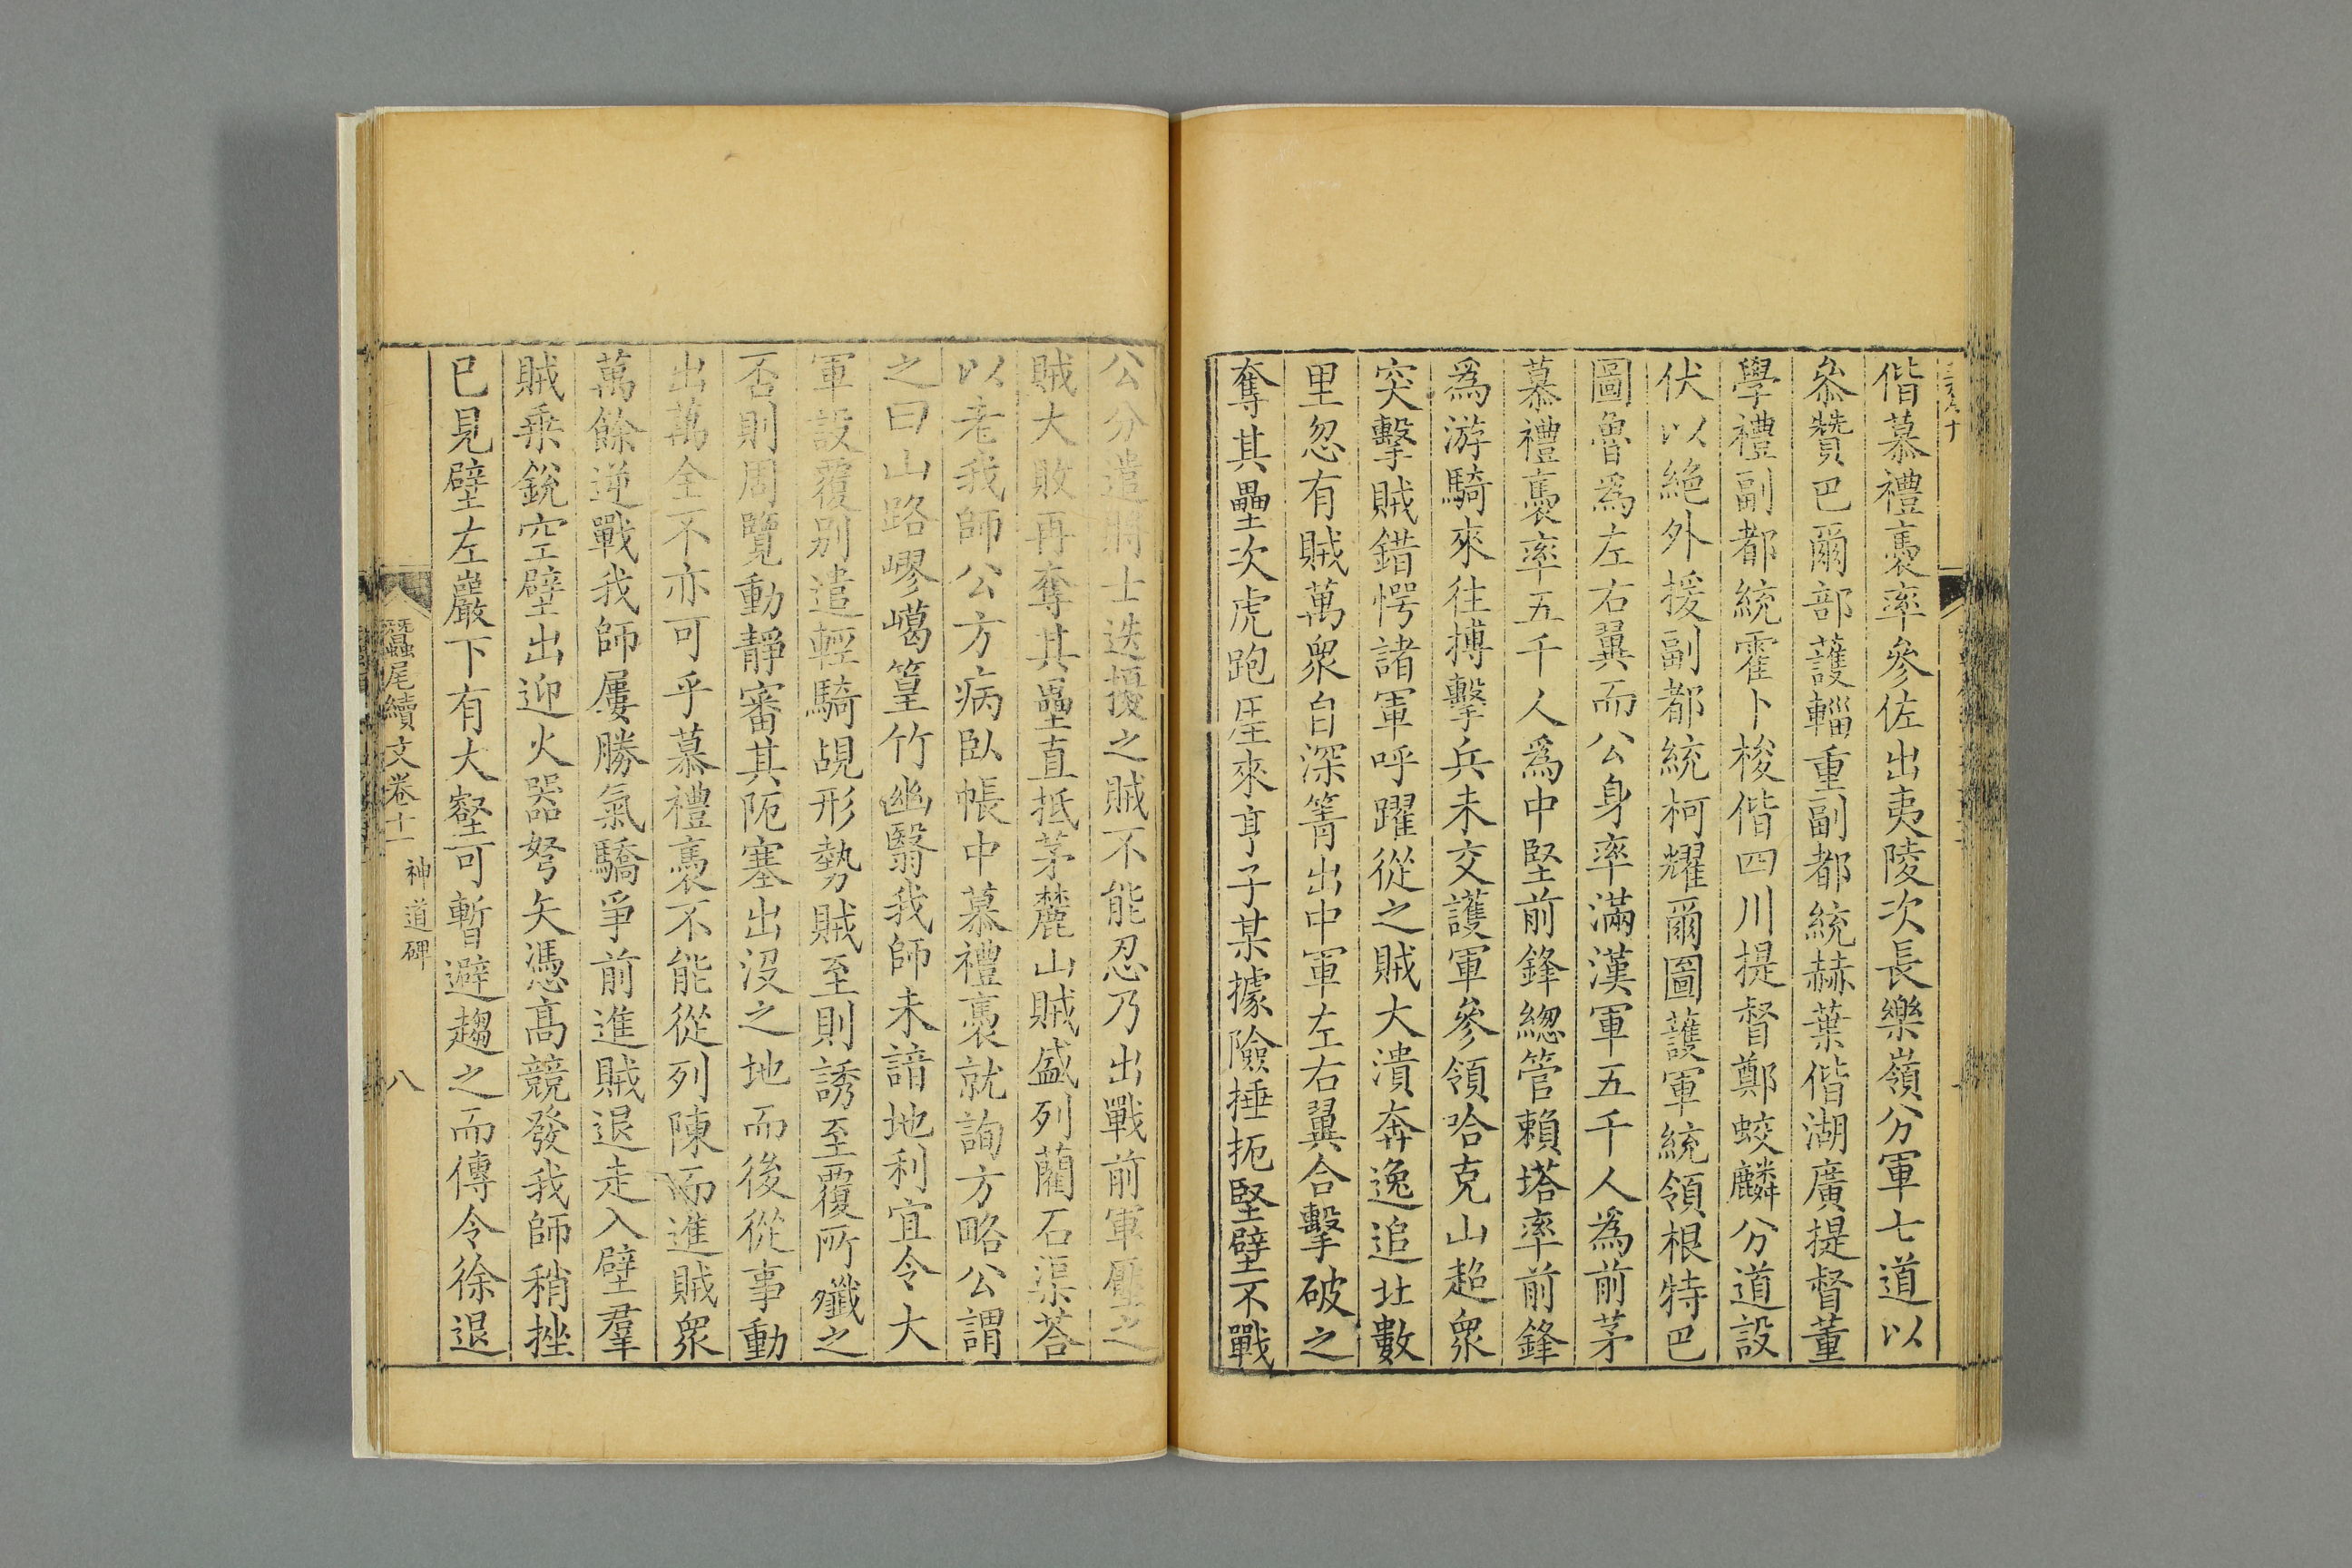 偕慕禮褭率參佐出夷陵次長樂嶺分軍七道以
叅贊巴爾部護輜重副都統赫葉偕湖廣提督董
學禮副都統霍卜梭偕四川提督鄭蛟麟分道設
伏以絕外援副都統柯耀爾圖護軍統領根特巴
圖魯爲左右翼而公身率滿漢軍五千人爲前茅
慕禮褭率五千人爲中堅前鋒緫管賴塔率前鋒
爲游騎來往搏擊兵未交護軍參領哈克山超衆
突擊賊錯愕諸軍呼躍從之賊大潰奔逸追北數
里忽有賊萬衆自深箐出中軍左右翼合擊破之
奪其壘次虎跑坙來亨子某據險捶扼堅壁不戰
公分遣將士迭擾之賊不能忍乃出戰前軍壓之
賊大敗再奪其壘直抵茅麓山賊盛列藺石渠荅
以老我師公方病臥帳中慕禮褭就詢方略公謂
之曰山路嵺嶱篁竹幽翳我師未諳地利宜令大
軍設覆别遣輕騎覘形勢賊至則誘至覆所殲之
否則周覽動靜審其阨塞出沒之地而後從事動
出萬全不亦可乎慕禮褭不能從列陳而進賊衆
萬餘逆戰我師屢勝氣驕爭前進賊退走入壁羣
賊乗銳空壁出迎火器弩矢憑高競發我師稍挫
巳見壁左巖下有大壑可暫避趨之而傳令徐退
蠶尾續文卷十一 神道碑 八